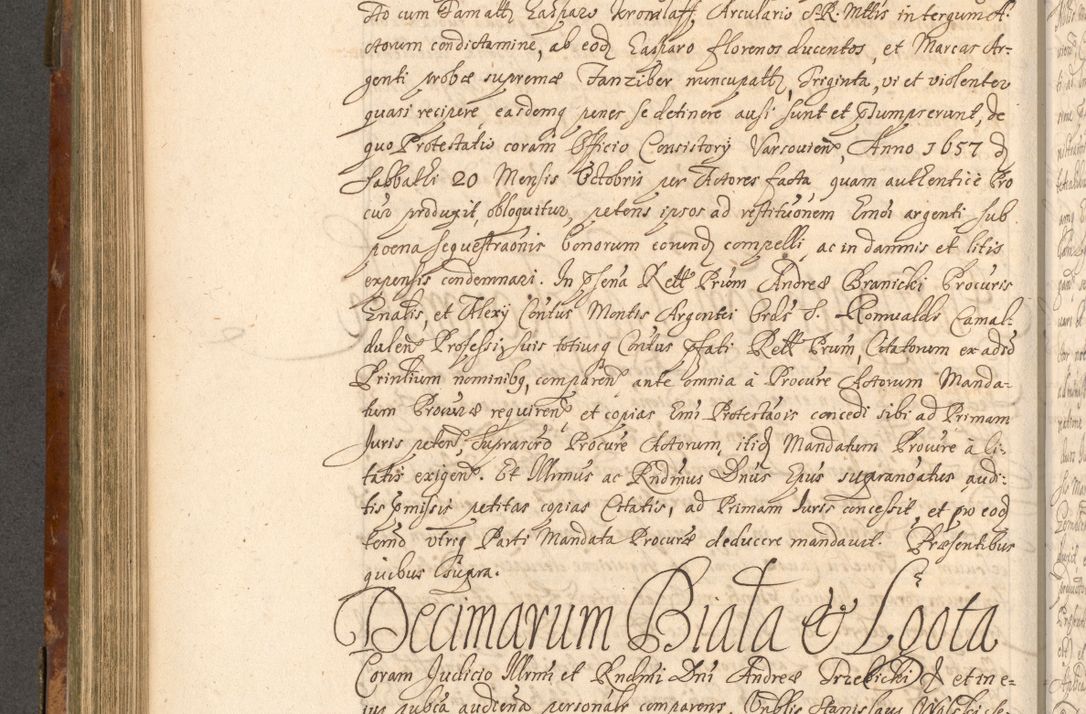 cto cum Famatt Casparo Kronlaff, Arculario S. R. Mttis in tergum A:
ctorum condictamine, ab eod Casparo florenos ducentos, et Marcas Ar-
genti probæ supremæ Tanziber nuncupatt, Triginta, vi et violenter
quasi recipere easdemq penes se detinere ausi sunt et præsumpserunt, de
quo Protestatio coram Officio Consistory Varsovien, Anno 1657 d
Sabbathi 20 Mensis Octobris per Actores facta, quam authenticè Pro
cur produxit obloquitur, petens ipsos ad restituonem Emdi argenti sub
poena sequestraonis bonorum eorund compelli, ac in damnis et litis
expensis condemnari. In psena Rett Prum Andreæ Branicki Procuris
Gnalis, et Alexy Contus Montis Argentei Ordis S. Romualdi Camal-
dulen Professi, suis totiusq Contus pfati Rett Prum, Citatorum ex adso
Printium nominibq, comparen ante omnia à Procure Actorum Manda-
tum Procuræ requiren et copias Emi Protestaois concedi sibi ad Primam
Juris peten, suprascro Procure Actorum, itid Mandatum Procuræ à Ci-
tatis exigen. Et Illrmus ac Rndmus Dnus Epus supranoatus audi-
tis pmissis petitas copias Citatis, ad Primam Juris concessit, et pro eod
termo utriq Parti Mandata Procuræ deducere mandavit. Præsentibus
quibus supra.
Decimarum Biała & Lgota
Coram Judicio Illrmi et Rndmi Dni Andreæ Trzebicki d et in e-
ius pubca audiena personalr comparens, Nobilis Stanislaus